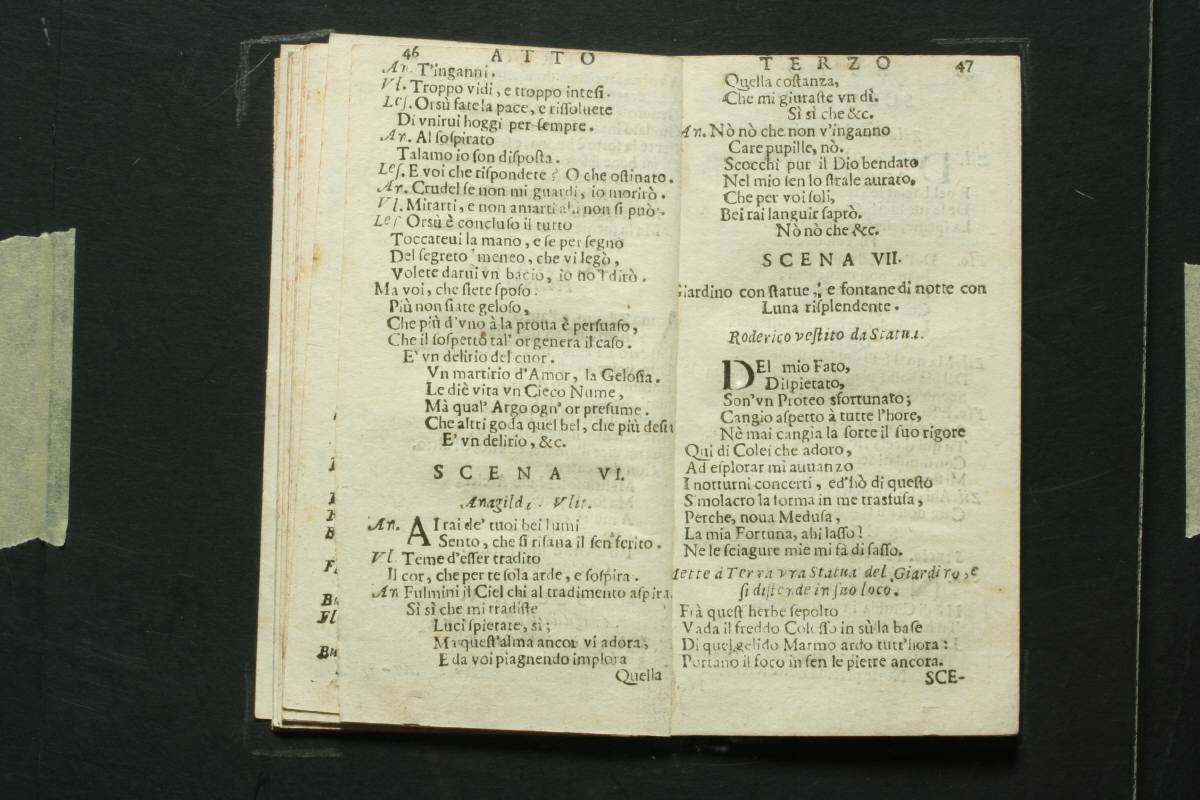 46 ATTO
An. T'inganni.
Vl. Troppo vidi, e troppo intesi.
Les. Orsù fate la pace, e rissoluete
Di vnirui hoggi per sempre.
An. Al sospirato
Talamo io son disposta.
Les. E voi che rispondete? O che ostinato.
An. Crudel se non mi guardi, io morirò.
Vl. Mirarti, e non amarti ahi non si può.
Les Orsù è concluso il tutto
Toccateui la mano, e se per segno
Del segreto Imeneo, che vi legò,
Volete darui vn bacio, io no'l dirò.
Ma voi, che siete sposo:
Più non siate geloso,
Che più d'vno à la proua è persuaso,
Che il sospetto tal' or genera il caso.
E' vn delirio del cuor.
Vn martirio d'Amor, la Gelosia.
Le diè vita vn Cieco Nume,
Mà qual' Argo ogn' or presume.
Che altri goda quel bel, che più desi
E' vn delirio, &c.
SCENA VI.
Anagilda. Vlit.
An. AI rai de' tuoi bei lumi
Sento, che si risana il sen ferito.
Vl. Teme d'esser tradito
Il cor, che per te sola arde, e sospira.
An Fulmini il Ciel chi al tradimento aspira.
Sì sì che mi tradiste
Luci spietate, sì;
Ma quest'alma ancor vi adora,
E da voi piagnendo implora
Quella
TERZO 47
Quella costanza,
Che mi giuraste vn dì.
Sì sì che &c.
An. Nò nò che non v'inganno
Care pupille, nò.
Scocchi pur il Dio bendato
Nel mio sen lo strale aurato,
Che per voi soli,
Bei rai languir saprò.
Nò nò che &c.
SCENA VII.
Giardino con statue, e fontane di notte con
Luna risplendente.
Roderico vestito da Statua.
DEl mio Fato,
Dispietato,
Son'vn Proteo sfortunato;
Cangio aspetto à tutte l'hore,
Nè mai cangia la sorte il suo rigore
Qui di Colei che adoro,
Ad esplorar mi auuanzo
I notturni concerti, ed'hò di questo
Simolacro la forma in me trasfusa,
Perche, noua Medusa,
La mia Fortuna, ahi lasso!
Ne le sciagure mie mi fà di sasso.
Mette à Terra vna Statua del Giardino, e
si distende in suo loco.
Frà quest' herbe sepolto
Vada il freddo Colosso in sù la base
Di quel gelido Marmo ardo tutt'hora:
Portano il foco in sen le pietre ancora.
SCE-